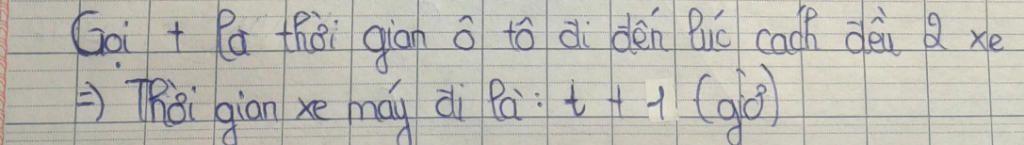 Gọi t là thời gian ô tô đi đến lúc cách đều 2 xe
⇒ Thời gian xe máy đi là: t + 1 (giờ)